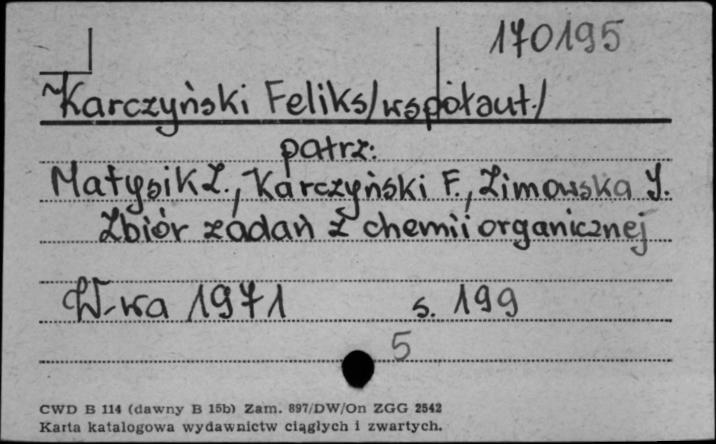 170195
Karczyński Feliks/współaut./
patrz:
Matysik Z., Karczyński F., Zimowska J.
Zbiór zadań z chemii organicznej
W-wa 1971 s. 199
5
CWD B 114 (dawny B 15b) Zam. 897/DW/On ZGG 2542
Karta katalogowa wydawnictw ciągłych i zwartych.